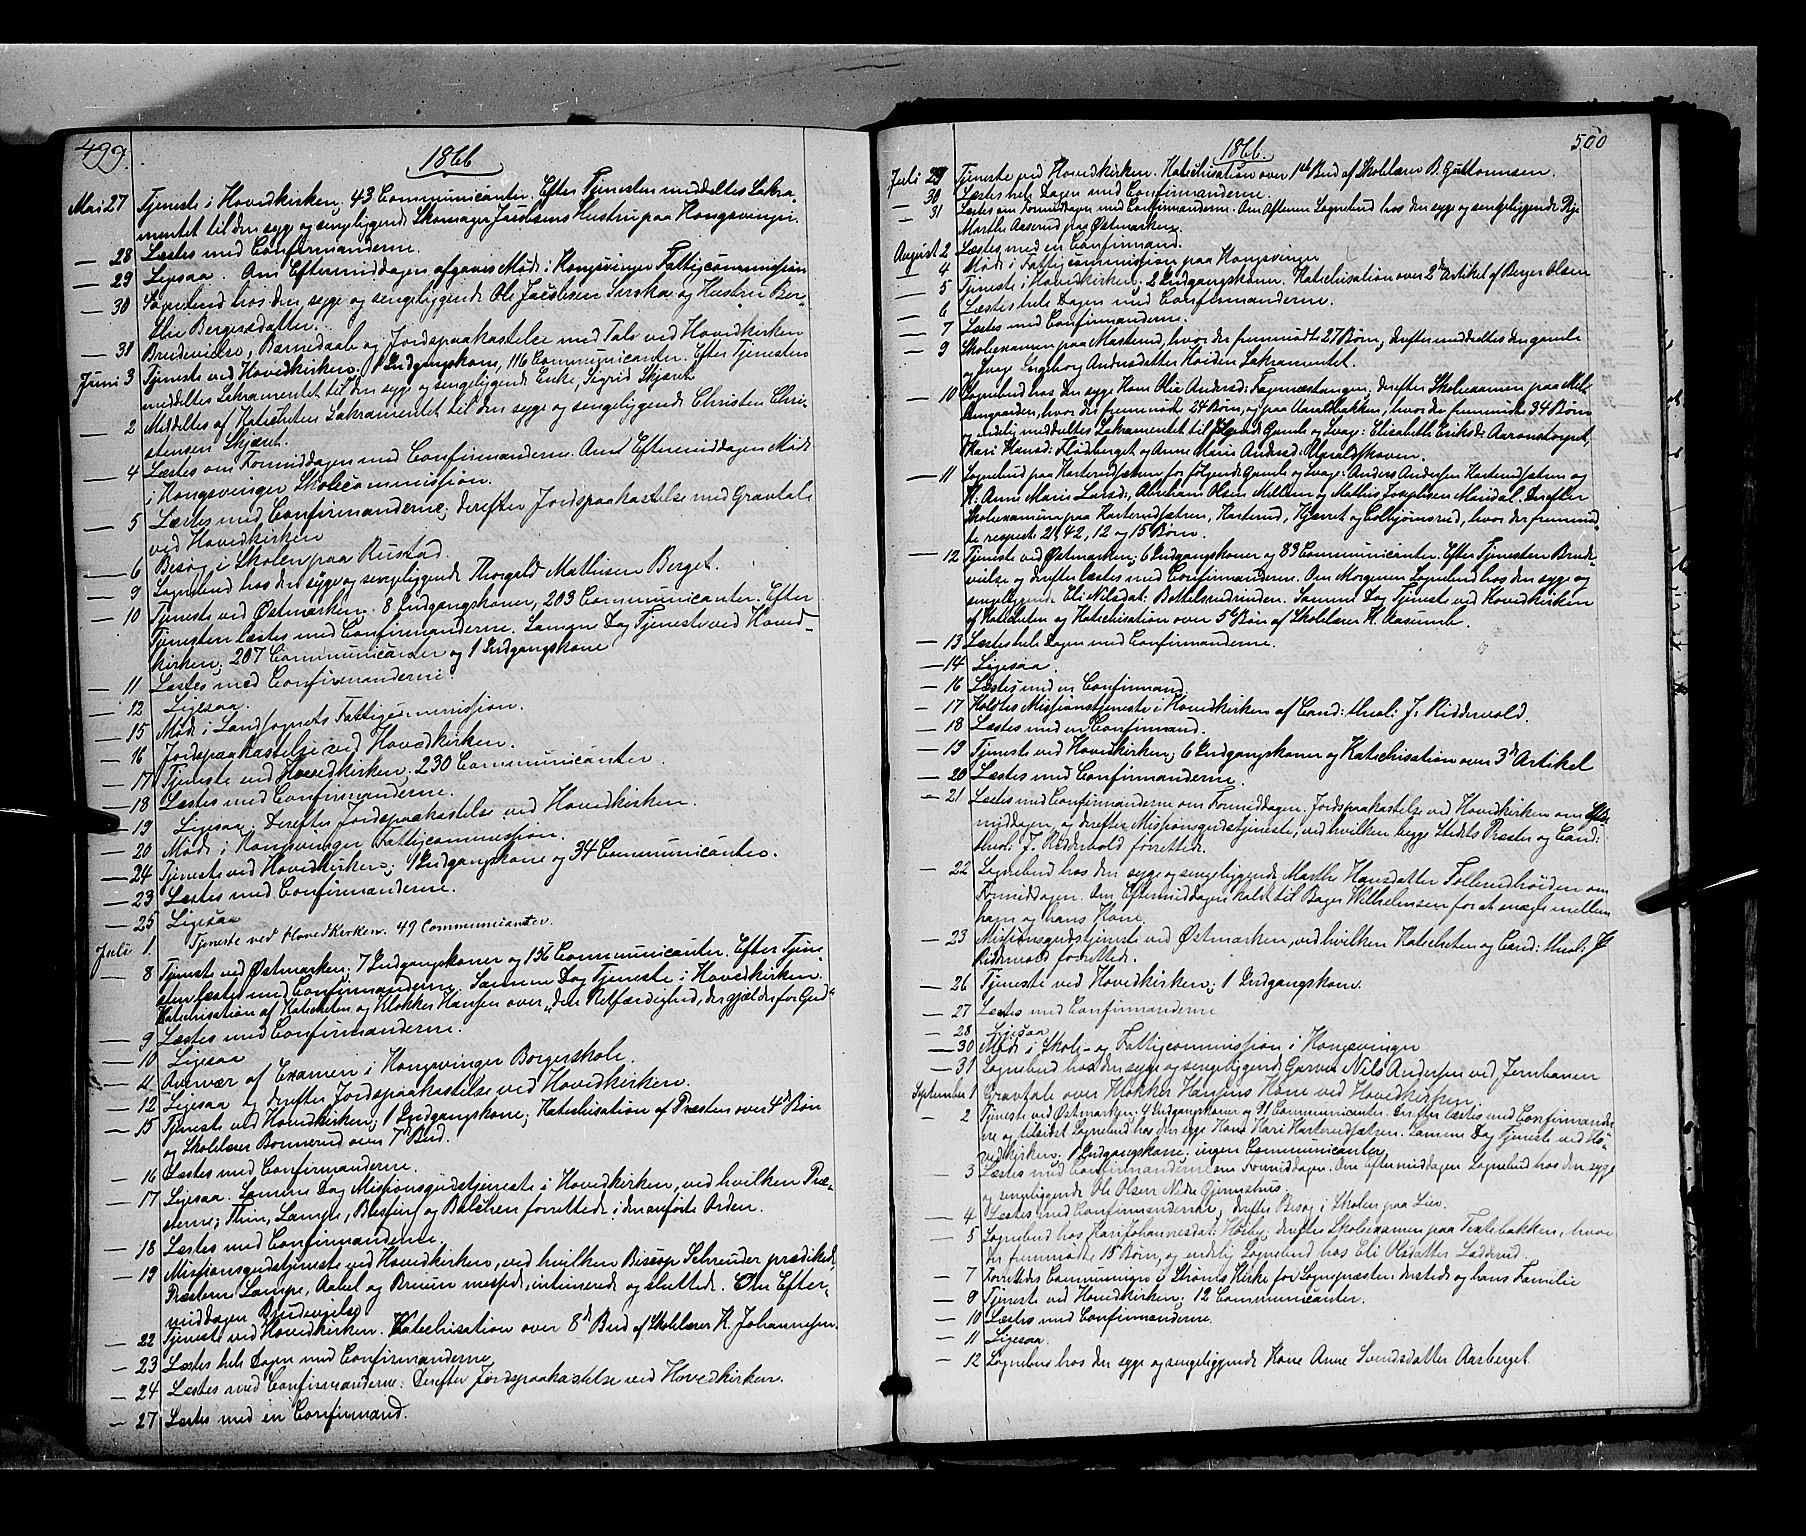 499.
1866
Mai 27 Tjeneste i Hovedkirken. 43 Communicanter. Efter Tjenesten meddeltes Sakra-
mentet til den syge og sengeliggende Skomager Jacobsens Hustru paa Kongsvinger.
— 28 Læstes med Confirmanderne.
— 29 Ligesaa. Om Eftermiddagen afgaves Møde i Kongsvinger Fattigcommission
— 30 Sognebud hos den syge og sengeliggende Ole Jacobsen og Hustru Ber-
the Bergersdatter.
— 31 Brudevielse, Barnedaab og Jordspaakastelse med Tale ved Hovedkirken
Juni 3 Tjeneste ved Hovedkirken. 1 Indgangskone, 116 Communicanter. Efter Tjenesten
meddeltes Sakramentet til den syge og sengeliggende Enke, Sigrid Skjæret
— 2 Meddeltes af Katecheten Sakramentet til den syge og sengeliggende Christen Chri-
stensen Skjæret.
— 4 Læstes om Formiddagen med Confirmanderne. Om Eftermiddagen Møde
i Kongsvinger Skolecommission.
— 5 Læstes med Confirmanderne; derefter Jordspaakastelse med Gravtale
ved Hovedkirken
— 6 Besøg i Skolen paa Rustad.
— 9 Sognebud hos den syge og sengeliggende Thorgald Mathisen Berget.
— 10 Tjeneste ved Østmarken. 8 Indgangskoner, 203 Communicanter. Efter
Tjenesten læstes med Confirmanderne. Samme Dag Tjeneste ved Hoved-
kirken. 207 Communicanter og 1 Indgangskone
— 11 Læstes med Confirmanderne.
— 12 Ligesaa.
— 15 Møde i Landsognets Fattigcommission.
— 16 Jordspaakastelse ved Hovedkirken.
— 17 Tjeneste ved Hovedkirken. 230 Communicanter.
— 18 Læstes med Confirmanderne.
— 19 Ligesaa. Derefter Jordspaakastelse ved Hovedkirken.
— 20 Møde i Kongsvinger Fattigcommission.
— 24 Tjeneste ved Hovedkirken; 1 Indgangskone og 34 Communicanter.
— 23 Læstes med Confirmanderne.
— 25 Ligesaa
Juli 1 Tjeneste ved Hovedkirken. 49 Communicanter.
— 8 Tjeneste ved Østmarken; 7 Indgangskoner og 156 Communicanter. Efter Tjene-
sten læstes med Confirmanderne. Samme Dag Tjeneste i Hovedkirken.
Katechisation af Katecheten og Klokker Hansen over „den Retfærdighed, der gjælder for Gud“
— 9 Læstes med Confirmanderne.
— 10 Ligesaa
— 11 Overvær af Examen i Kongsvinger Borgerskole.
— 12 Ligesaa og derefter Jordspaakastelse ved Hovedkirken.
— 15 Tjeneste ved Hovedkirken; 1 Indgangskone; Katechisation af Præsten over 4de Bøn
og Skolelærer Bonnerud over 7de Bud.
— 16 Læstes med Confirmanderne.
— 17 Ligesaa. Samme Dag Missionsgudstjeneste i Hovedkirken, ved hvilken Præ-
sterne; Thin, Lampe, Blessing og Balchen forrettede i den anførte Orden.
— 18 Læstes med Confirmanderne.
— 19 Missionsgudstjeneste ved Hovedkirken, ved hvilken Biscop Schreuder prædikede,
Præsterne Lampe, Aabel og Bruun messede, intimerede og sluttede. Om Efter-
middagen Brudevielse
— 22 Tjeneste ved Hovedkirken. Katechisation over 8de Bud af Skolelærer K. Johannesen.
— 23 Læstes hele Dagen med Confirmanderne
— 24 Læstes med Confirmanderne. Derefter Jordspaakastelse ved Hovedkirken.
— 27 Læstes med en Confirmand.
500
1866.
Juli 29 Tjeneste ved Hovedkirken. Katechisation over 1ste Bud af Skolelærer B. Guttormsen.
— 30 Læstes hele Dagen med Confirmanderne.
— 31 Læstes om Formiddagen med Confirmanderne. Om Aftenen Sognebud hos den syge og sengeliggende Pige
Marthe Asserud paa Østmarken.
August 2 Læstes med en Confirmand.
— 4 Møde i Fattigcommission paa Kongsvinger
— 5 Tjeneste i Hovedkirken; 2 Indgangskoner. Katechisation over 2den Artikel af Berger Olsen
— 6 Læstes hele Dagen med Confirmanderne.
— 7 Læstes med Confirmanderne.
— 9 Skoleexamen paa Masterud, hvor der fremmødte 27 Børn; derefter meddeltes den gamle
og svage Ingeborg Andersdatter Høiden Sakramentet.
— 10 Sognebud hos den syge Kone Olia Andersd: Fagernæstangen; derefter Skoleexamen paa Mel-
lengaarden, hvor der fremmødte 24 Børn, og paa Varaldbakken, hvor der fremmødte 34 Børn
endelig meddeltes Sakramentet til følgende Gamle og Svage: Elisabeth Eriksd: Aaronstorpet,
Kari Hansd: Flødberget og Anne Marie Andersd: Varaldskoven.
— 11 Sognebud paa Karterudsætren for følgende Gamle og Svage: Anders Andersen Karterudsætren og
K. Anne Marie Larsd:, Abraham Olsen Millom og Mathis Josephsen Mendal. Derefter
Skoleexamina paa Karterudsætren, Karterud, Kjerret og Colbjørnsrud, hvor der fremmød-
te respect. 21, 42, 12 og 15 Børn.
— 12 Tjeneste ved Østmarken; 6 Indgangskoner og 89 Communicanter. Efter Tjenesten Brude-
vielse og derefter læstes med Confirmanderne. Om Morgenen Sognebud hos den syge og
sengeliggende Eli Nilsdat: Bottelsrudrinden. Samme Dag Tjeneste ved Hovedkirken
af Katecheten og Katechisation over 5te Bøn af Skolelærer K. Aasumb.
— 13 Læstes hele Dagen med Confirmanderne.
— 14 Ligesaa.
— 16 Læstes med en Confirmand.
— 17 Holdtes Missionstjeneste i Hovedkirken af Cand: theol: J. Riddervold.
— 18 Læstes med en Confirmand.
— 19 Tjeneste ved Hovedkirken; 6 Indgangskoner og Katechisation over 3de Artikel
— 20 Læstes med Confirmanderne.
— 21 Læstes med Confirmanderne om Formiddagen. Jordspaakastelse ved Hovedkirken om Efter-
middagen, og derefter Missionsgudstjeneste, ved hvilken begge Stedets Præster og Cand:
theol: J. Riddervold forrettede.
— 22 Sognebud hos den syge og sengeliggende Marthe Hansdatter Follerudhøiden om
Formiddagen. Om Eftermiddagen kaldt til Bager Wilhelmsen for at mægle mellem
ham og hans Kone.
— 23 Missionsgudstjeneste ved Østmarken, ved hvilken Katecheten og Cand: theol: J.
Riddervold forrettede.
— 26 Tjeneste ved Hovedkirken; 1 Indgangskone.
— 27 Læstes med Confirmanderne
— 28 Ligesaa
— 30 Møde i Skole- og Fattigcommission i Kongsvinger
— 31 Sognebud hos den syge og sengeliggende Garver Nils Andersen ved Jernbanen
September 1 Gravtale over Klokker Hansens Kone ved Hovedkirken.
— 2 Tjeneste ved Østmarken; 4 Indgangskoner og 91 Communicanter. Derefter læstes med Confirmander-
ne og tilsidst Sognebud hos den syge Kone Kari Karterudsætren. Samme Dag Tjeneste ved Ho-
vedkirken. 1 Indgangskone; ingen Communicanter
— 3 Læstes med Confirmanderne om Formiddagen. Om Eftermiddagen Sognebud hos den syge
og sengeliggende Ole Olsen Nedre Gjemshus.
— 4 Læstes med Confirmanderne; derefter Besøg i Skolen paa Lier.
— 5 Sognebud hos Kari Johannesdat: Høiby, derefter Skoleexamen paa Textebakken, hvor
der fremmødte 15 Børn, og endelig Sognebud hos Eli Olsdatter Ladderud.
— 7 Forrettedes Communion i Strøms Kirke for Sognepræsten dersteds og hans Familie
— 9 Tjeneste ved Hovedkirken; 12 Communicanter.
— 10 Læstes med Confirmanderne.
— 11 Ligesaa.
— 12 Sognebud hos den syge og sengeliggende Kone Anne Svendsdatter Aasberget.